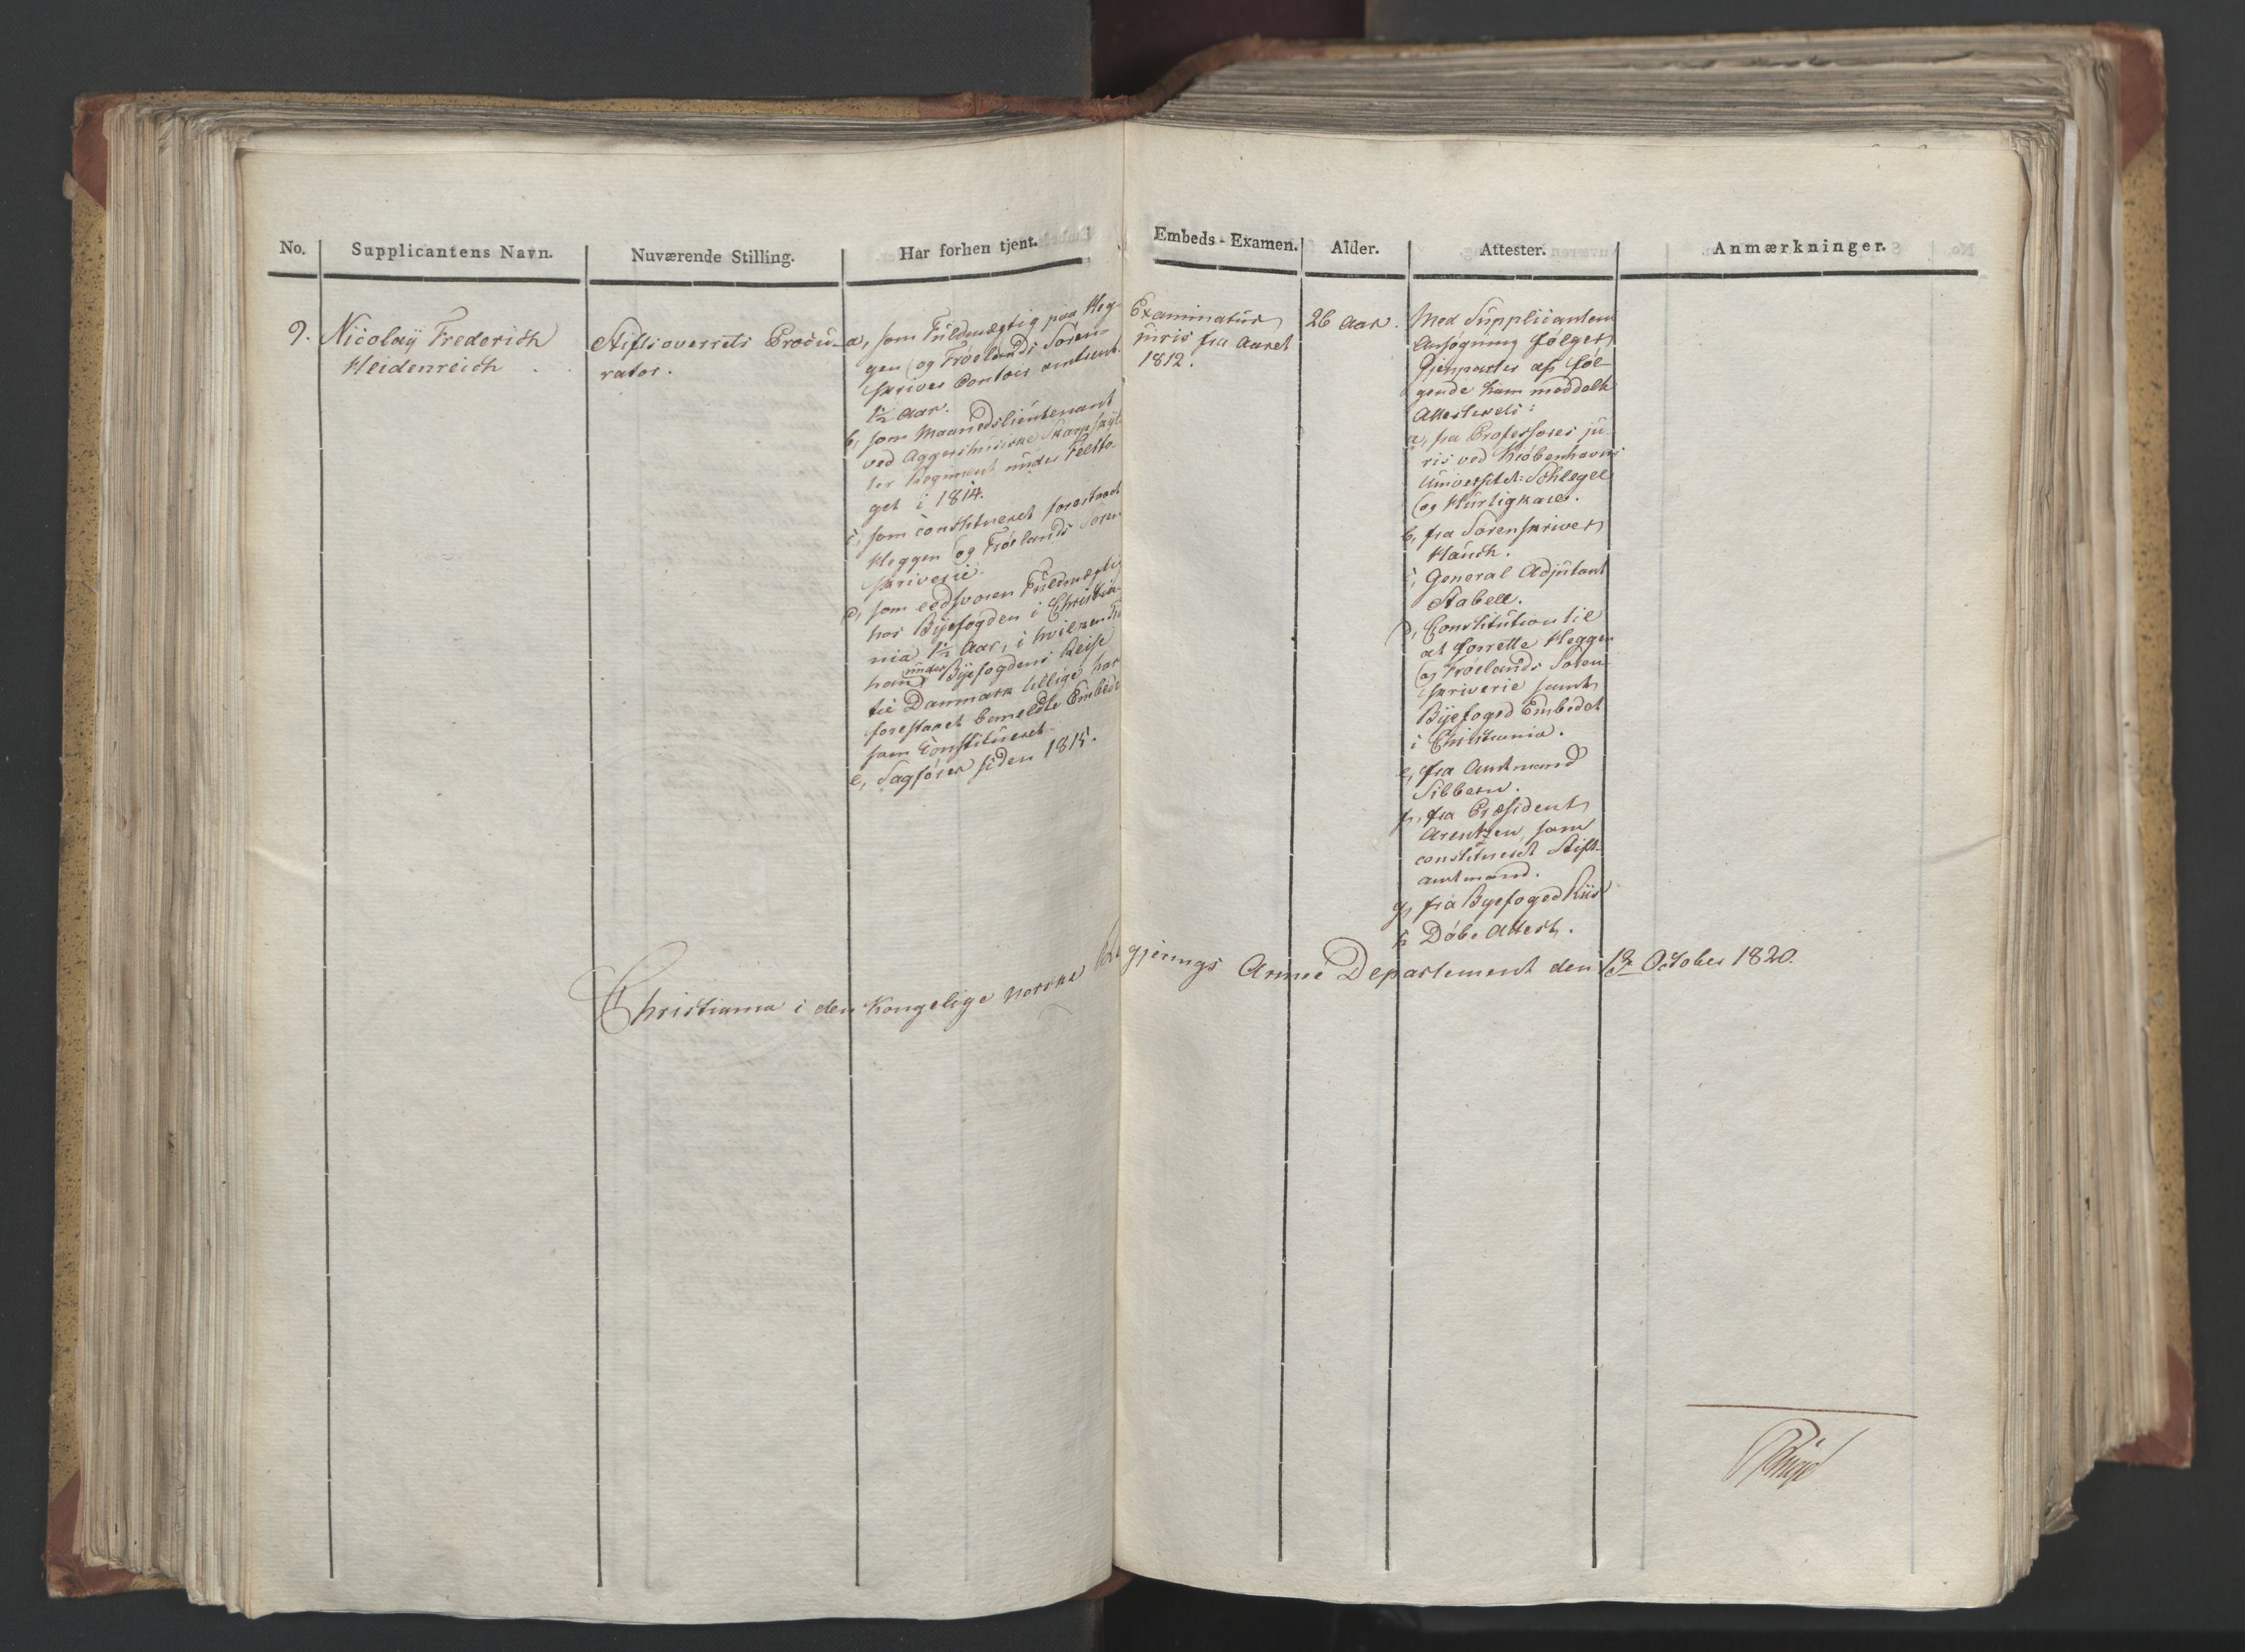 No. Supplicantens Navn. Nuværende Stilling. Har forhen tjent. Embeds-Examen. Alder. Attester. Anmærkninger.
9. Nicolay Frederich
Heidenreich
Stiftsoverrets Procu-
rator.
a, som Fuldmægtig paa Heg-
gen og Frøelands Soren-
skriver Contoir omtrent
1½ Aar.
b, som Maanedslieutenant
ved Aggershuusiske Skarpskyt-
ter Regiment under Feltto-
get i 1814.
c, som constitueret forestaaet
Heggen og Frøelands Soren
skriverie.
d, som eedsvoren Fuldmægtig
hos Byefogden i Christia-
nia 1½ Aar, i hvilken Tid
han under Byefogdens Reise
til Danmark tillige har
forestaaet bemeldte Embede
som Constitueret.
e, Sagfører siden 1815.
Examinatus
juris fra Aaret
1812.
26 Aar.
Med Supplicantens
Ansøgning følger
Gjenparter af føl-
gende ham meddelte
Attester:
a, fra Professores ju-
ris ved Kiøbenhavns
Universitet: Schlegel
og Hurtigkarl.
b, fra Sorenskriver
Hauch.
c, General Adjutant
Stabell.
d, Constitution til
at forrette Heggen
og Frøelands Soren-
skriverie samt
Byefoged Embedet
i Christiania.
e, fra Amtmand
Sibbern.
f, fra Præsident
Arentzen, som
constitueret Stift-
amtmand.
g, fra Byefoged Riis
h Døbe Attest.
Christiania i den Kongelige Norske Regjerings Armee Departement den October 1820.